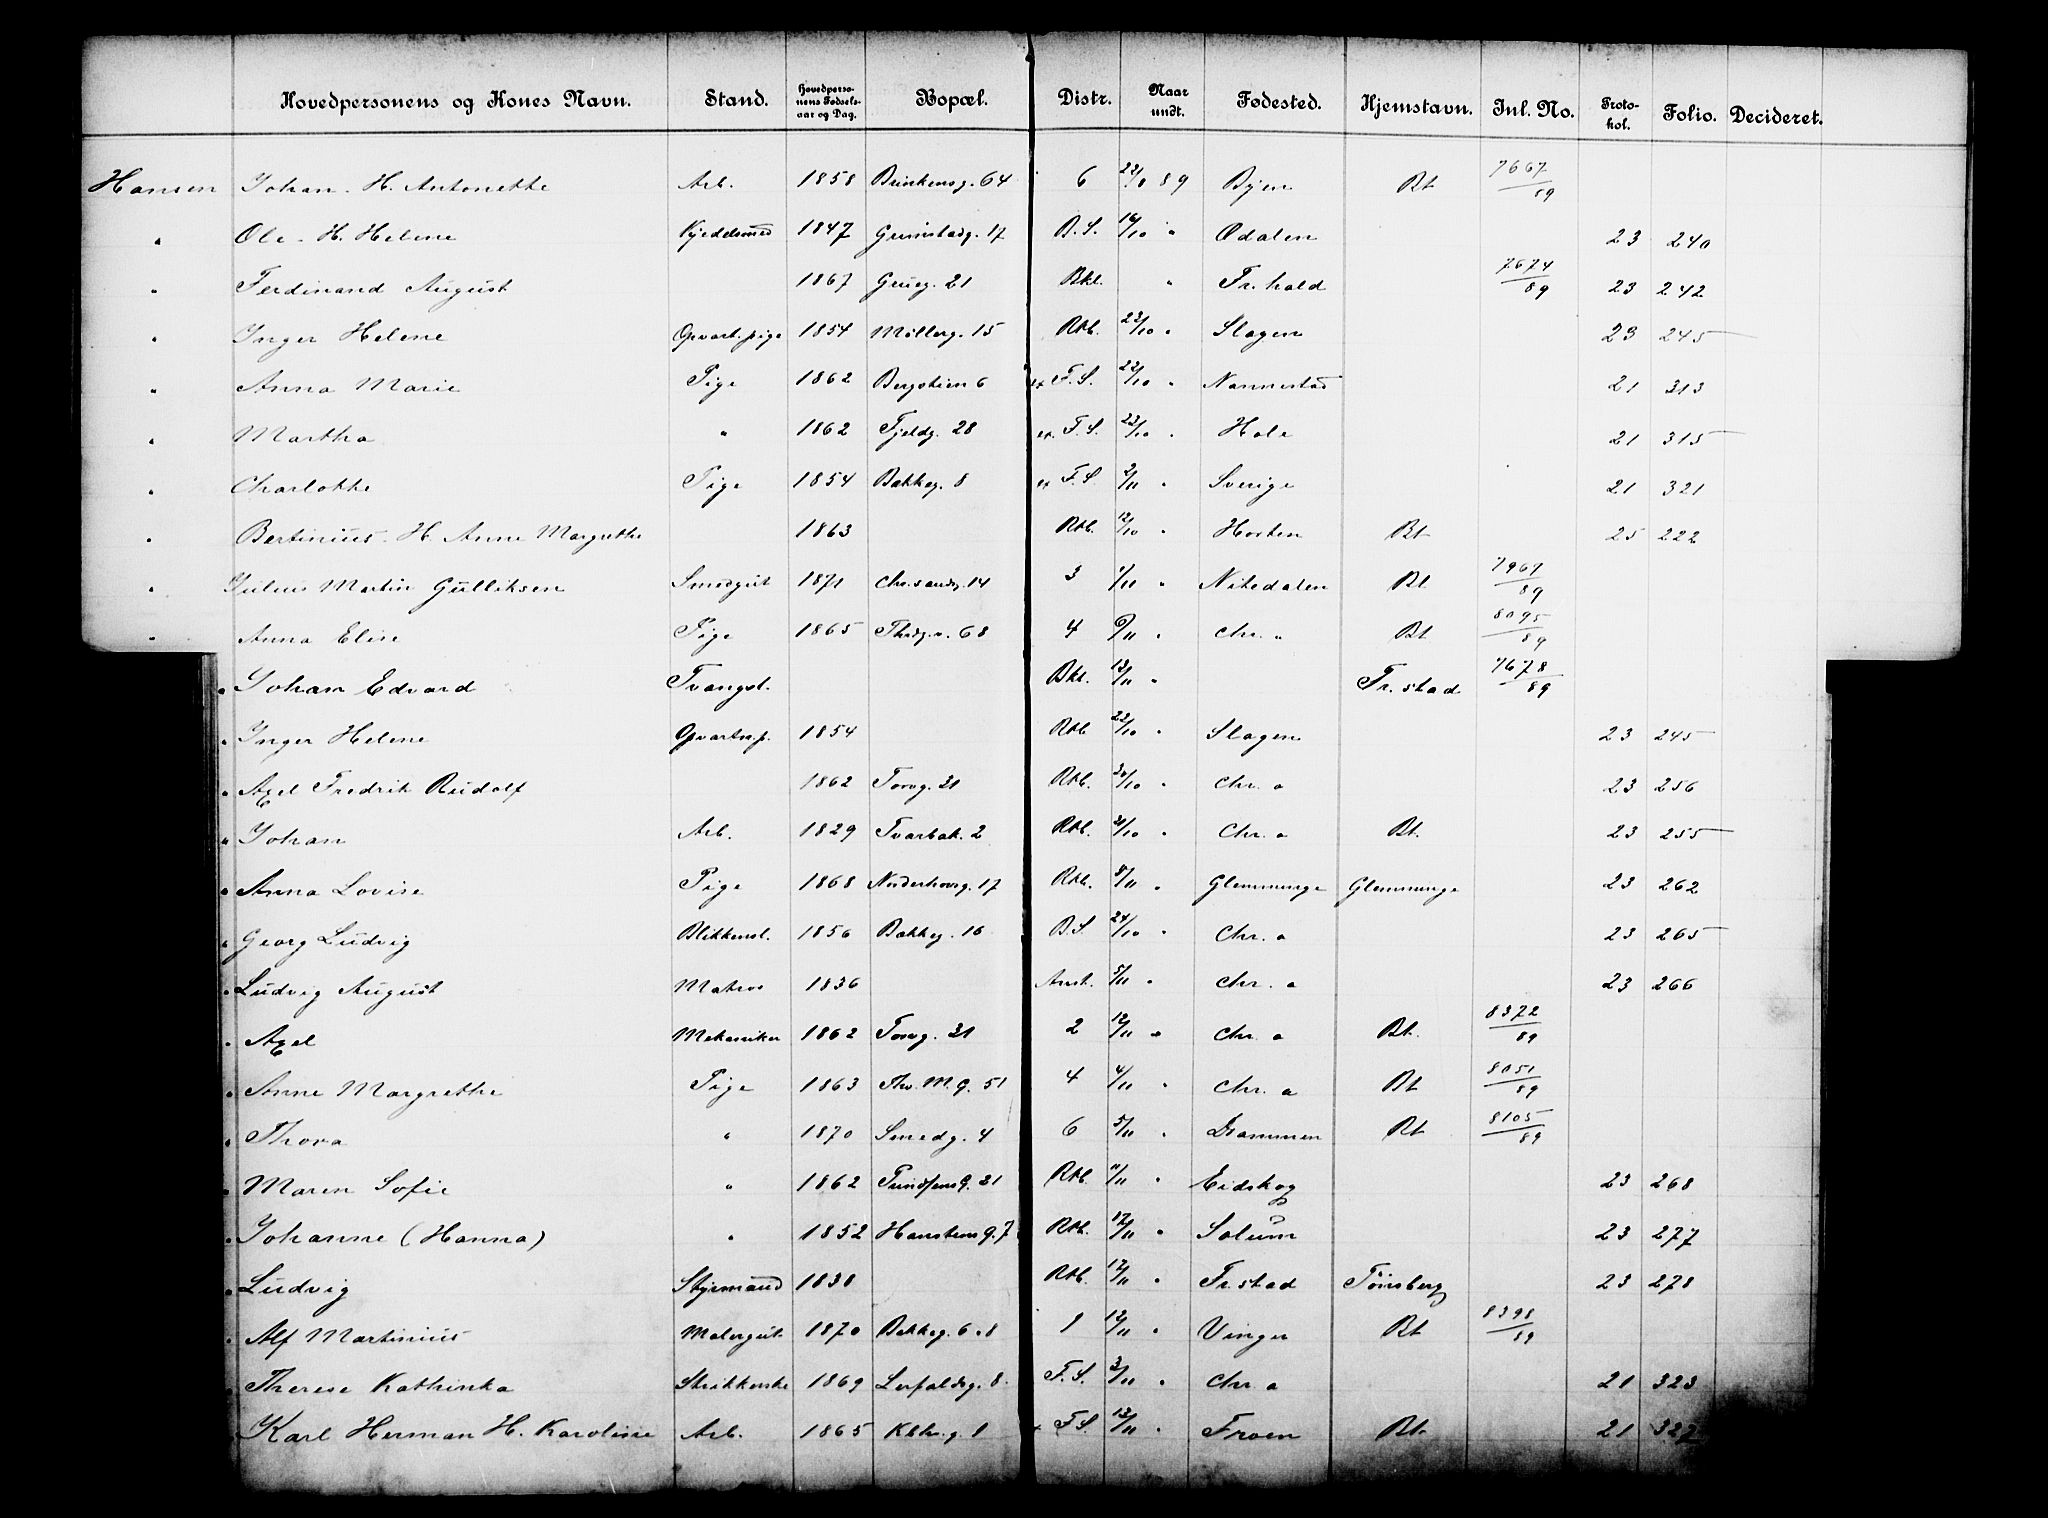 Hovedpersonens og Kones Navn. Stand. Hovedpersonens Fødselsaar og Dag. Bopæl. Distr. Naar undt. Fødested. Hjemstavn. Inl. No. Protokol. Folio. Decideret.
Hansen Johan. H. Antonette Arb. 1858 Brinkensg. 64 6 22/8 89 Byen Bt 7667/89
" Ole. H. Helene Kjedelsmed 1847 Grimstadg. 17 B.S. 16/10 " Odalen 23 240
" Ferdinand August 1867 Grueg. 21 Bkl. " Fr.hald 7674/89 23 242
" Inger Helene Opvart.pige 1854 Møllerg. 15 Rkb. 23/10 " Slagen 23 245
" Anna Marie Pige 1862 Bergstien 6 ex F.S. 22/10 " Nannestad 21 313
" Martha " 1862 Fjeldg. 28 ex. F.S. 23/10 " Hole 21 315
" Charlotte Pige 1854 Bakkeg. 8 ex F.S. 2/11 " Sverige 21 321
" Bertinius. H. Anne Margrethe 1863 Rkb. 12/10 " Horten Bt 25 222
" Julius Martin Gulliksen Smedgut 1871 Chr.sandsg. 14 3 1/11 " Nitedalen Bt 7967/89
" Anna Elise Pige 1865 Thdg. 68 4 6/11 " Chr. " Bt 8095/89
" Johan Edvard Tvangsl. Bkl. 13/11 " Fr.stad 7678/89
" Inger Helene Opvartn.p. 1854 Rkb 22/10 " Slagen 23 245
" Axel Fredrik Rudolf 1862 Torvg. 31 Rkb. 30/10 " Chr. a 23 256
" Johan Arb. 1829 Tværbak. 2 Rkb. 31/10 " Chr. a Bt. 23 255
" Anna Lovise Pige 1868 Norderhovsg. 17 Rkb. 8/11 " Glemminge Glemminge 23 262
" Georg Ludvig Blikkensl. 1856 Bakkeg. 16 B.S. 24/10 " Chr. a 23 265
" Ludvig August Matros 1836 Anst. 5/11 " Chr. a 23 266
" Axel Mekaniker 1862 Torvg. 31 2 12/11 " Chr. a Bt. 8372/89
" Anne Margrethe Pige 1863 Thv. M. g. 51 4 4/11 " Chr. a Bt 8051/89
" Thora " 1870 Smedg. 4 6 5/11 " Drammen Bt 8105/89
" Maren Sofie " 1862 21 Rkb. 11/11 " Eidskog 23 268
" Johanne (Hanna) " 1852 Hanstens g. 7 Rkb. 12/11 " Solum 23 277
" Ludvig Styrmand 1838 Rkb. 12/11 " Fr.stad Tönsberg 23 278
" Alf Martinius Malergut 1870 Bakkeg. 6 o 8 1 12/11 " Vinger Bt 8398/89
" Therese Kathinka Strikkerske 1869 Lerfaldsg. 8 F.S. 3/11 " Chr a 21 323
Karl Herman H. Karoline Arb. 1865 1 x F.S. 13/11 " Froen Bt. 21 327